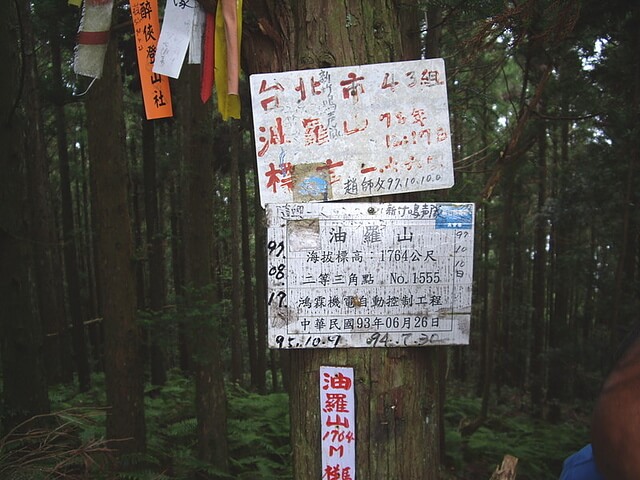 醉俠登山社
台北市43組
油羅山 78年
標高
趙師父97.10.10.
新竹鳴芦隊
油羅山
海拔標高：1764公尺
二等三角點 No.1555
鴻霖機電自動控制工程
中華民國93年06月26日
97.
08.
17.
97
10
12
日
95.10.7 94.7.30
油羅山1764M標高